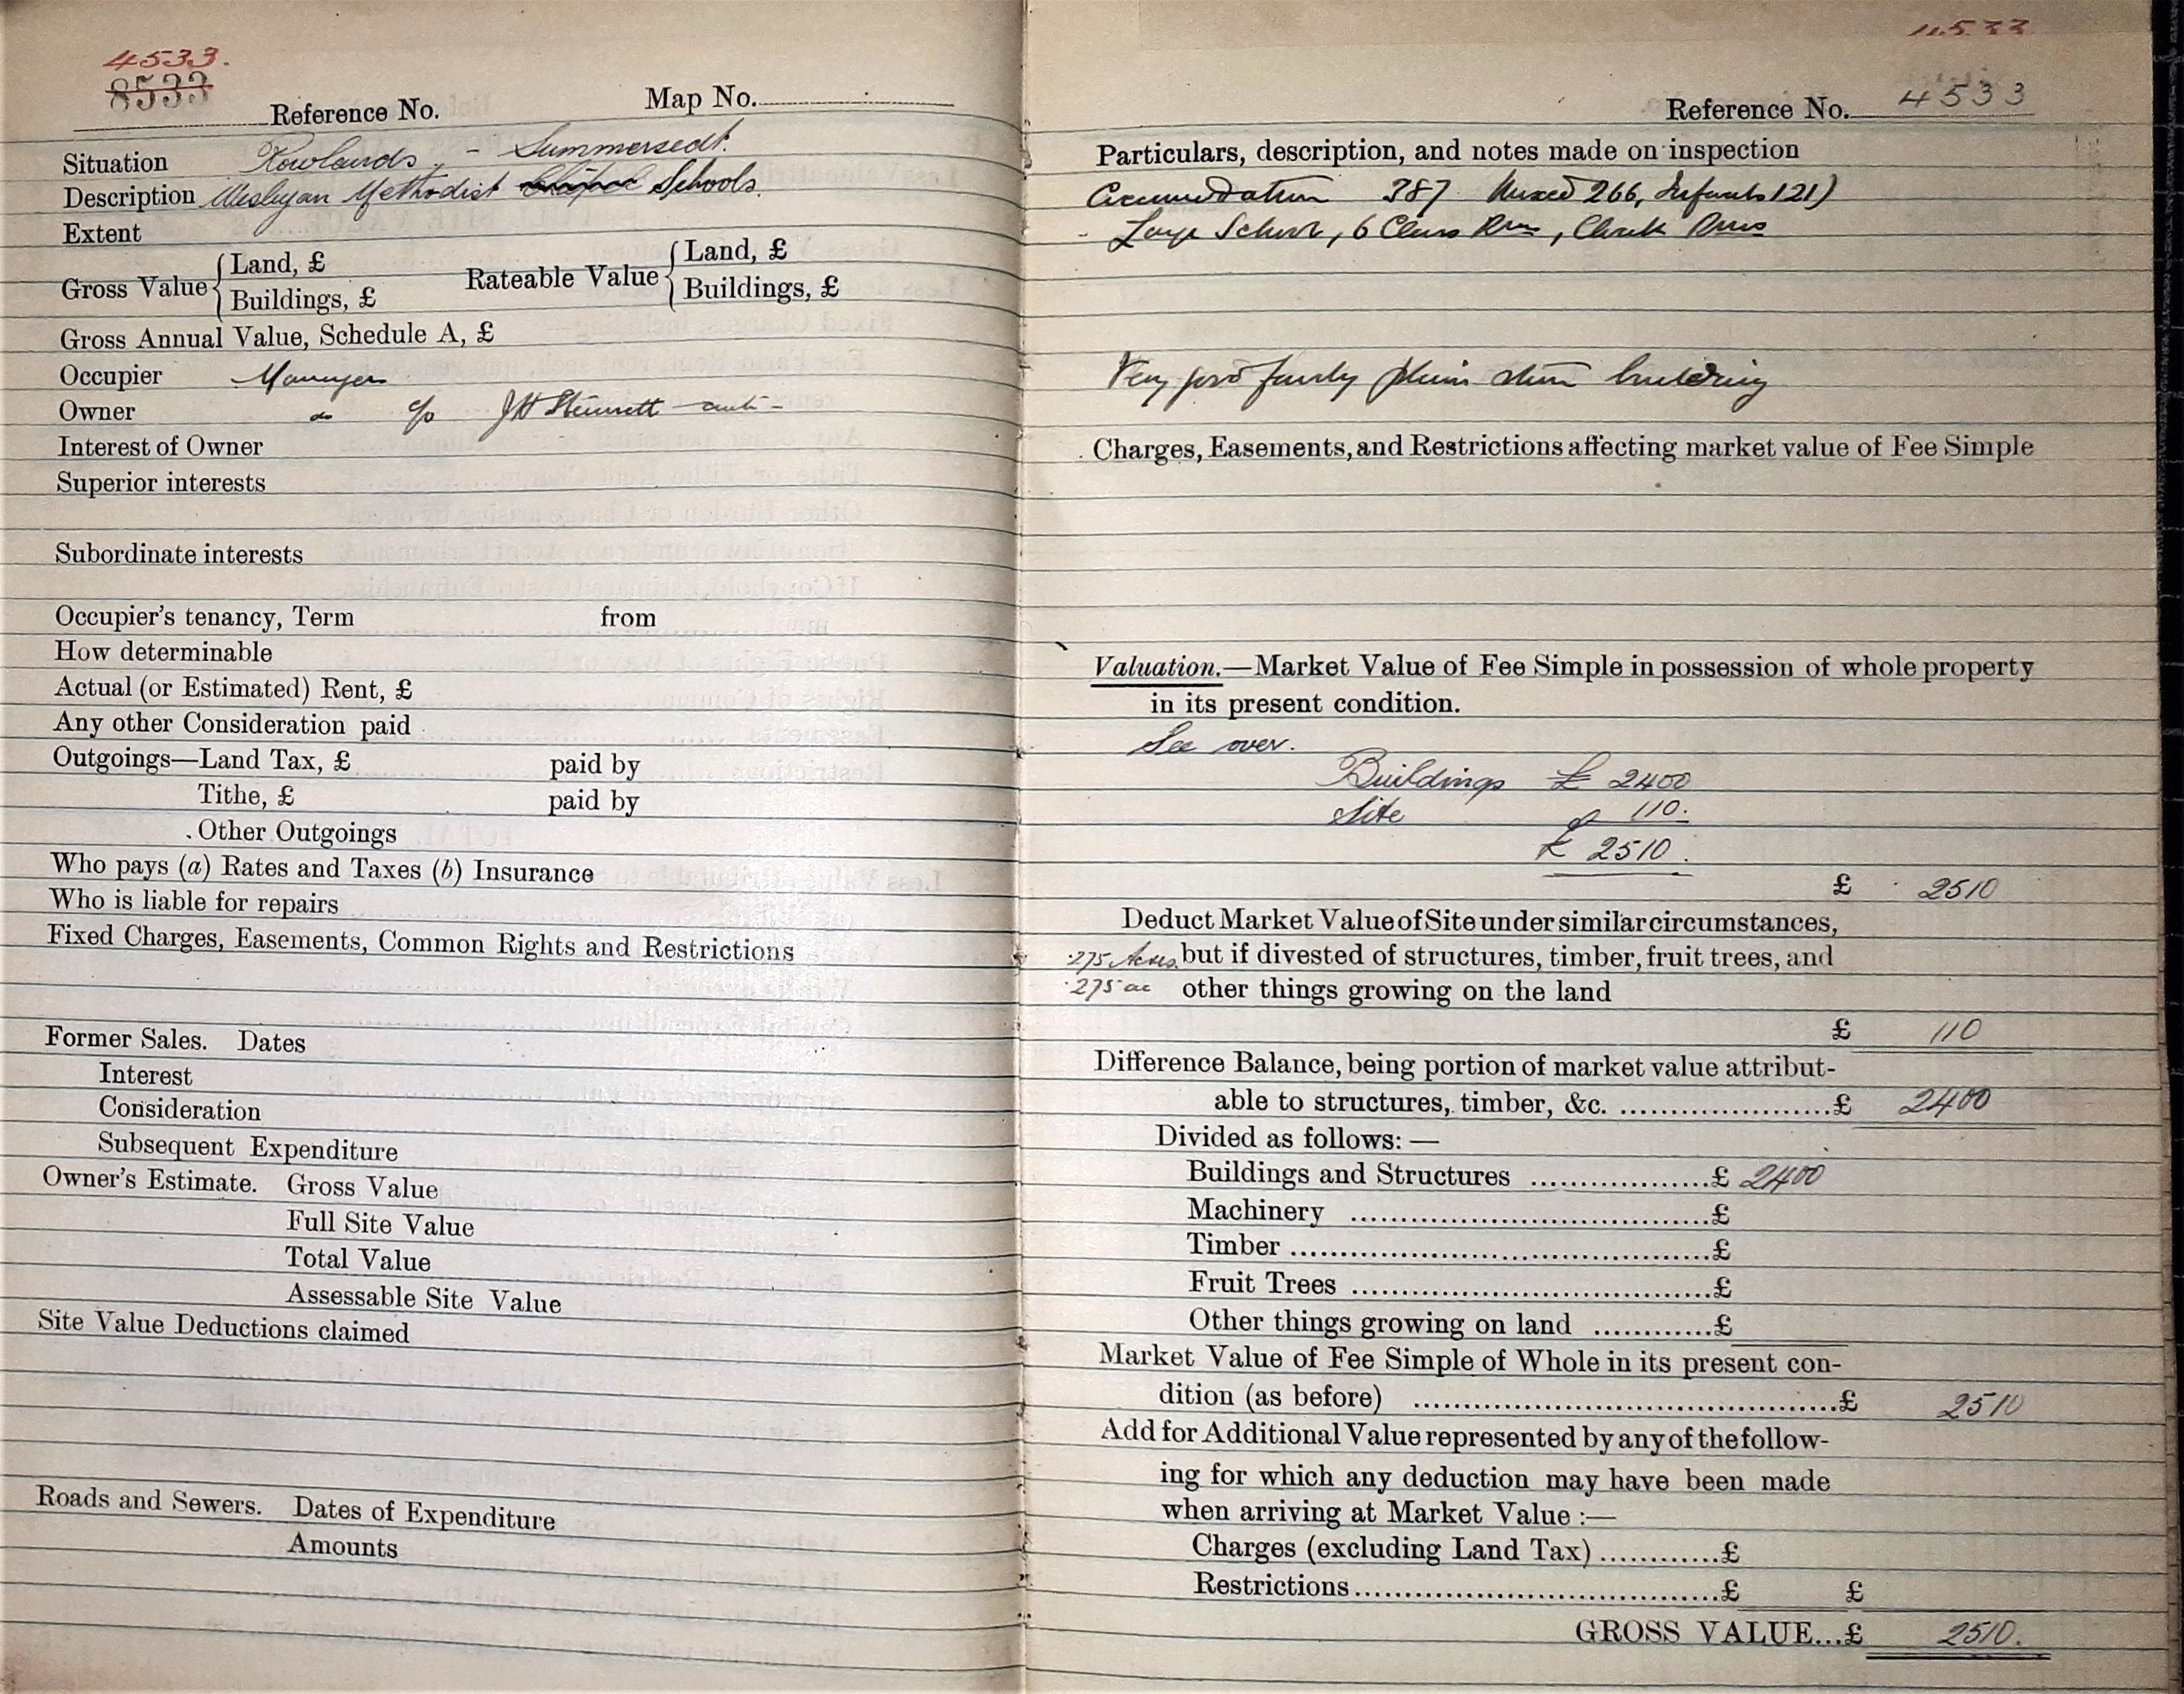 4533.
8533
Reference No. Map No.
Situation Rowlands - Summerseat.
Description Wesleyan Methodist Schools.
Extent
Gross Value { Land, £ Rateable Value { Land, £
Buildings, £ Buildings, £
Gross Annual Value, Schedule A, £
Occupier Managers
Owner do c/o J H Stennett
Interest of Owner
Superior interests
Subordinate interests
Occupier's tenancy, Term from
How determinable
Actual (or Estimated) Rent, £
Any other Consideration paid
Outgoings—Land Tax, £ paid by
Tithe, £ paid by
Other Outgoings
Who pays (a) Rates and Taxes (b) Insurance
Who is liable for repairs
Fixed Charges, Easements, Common Rights and Restrictions
Former Sales. Dates
Interest
Consideration
Subsequent Expenditure
Owner's Estimate. Gross Value
Full Site Value
Total Value
Assessable Site Value
Site Value Deductions claimed
Roads and Sewers. Dates of Expenditure
Amounts
4533
Reference No. 4533
Particulars, description, and notes made on inspection
Accommodation 387 Mixed 266, Infants 121)
Large School, 6 Class Rms, Cloak Rms
Very good fairly plain stone building
Charges, Easements, and Restrictions affecting market value of Fee Simple
Valuation.—Market Value of Fee Simple in possession of whole property
in its present condition.
See over.
Buildings £ 2400
Site 110.
£ 2510.
£ 2510
Deduct Market Value of Site under similar circumstances,
·275 Acres. but if divested of structures, timber, fruit trees, and
·275 ac other things growing on the land
£ 110
Difference Balance, being portion of market value attribut-
able to structures, timber, &c. ........................£ 2400
Divided as follows: —
Buildings and Structures ....................£ 2400
Machinery ........................................£
Timber ...............................................£
Fruit Trees ........................................£
Other things growing on land ............£
Market Value of Fee Simple of Whole in its present con-
dition (as before) ................................................£ 2510
Add for Additional Value represented by any of the follow-
ing for which any deduction may have been made
when arriving at Market Value :—
Charges (excluding Land Tax) ............£
Restrictions..........................................£ £
GROSS VALUE...£ 2510.